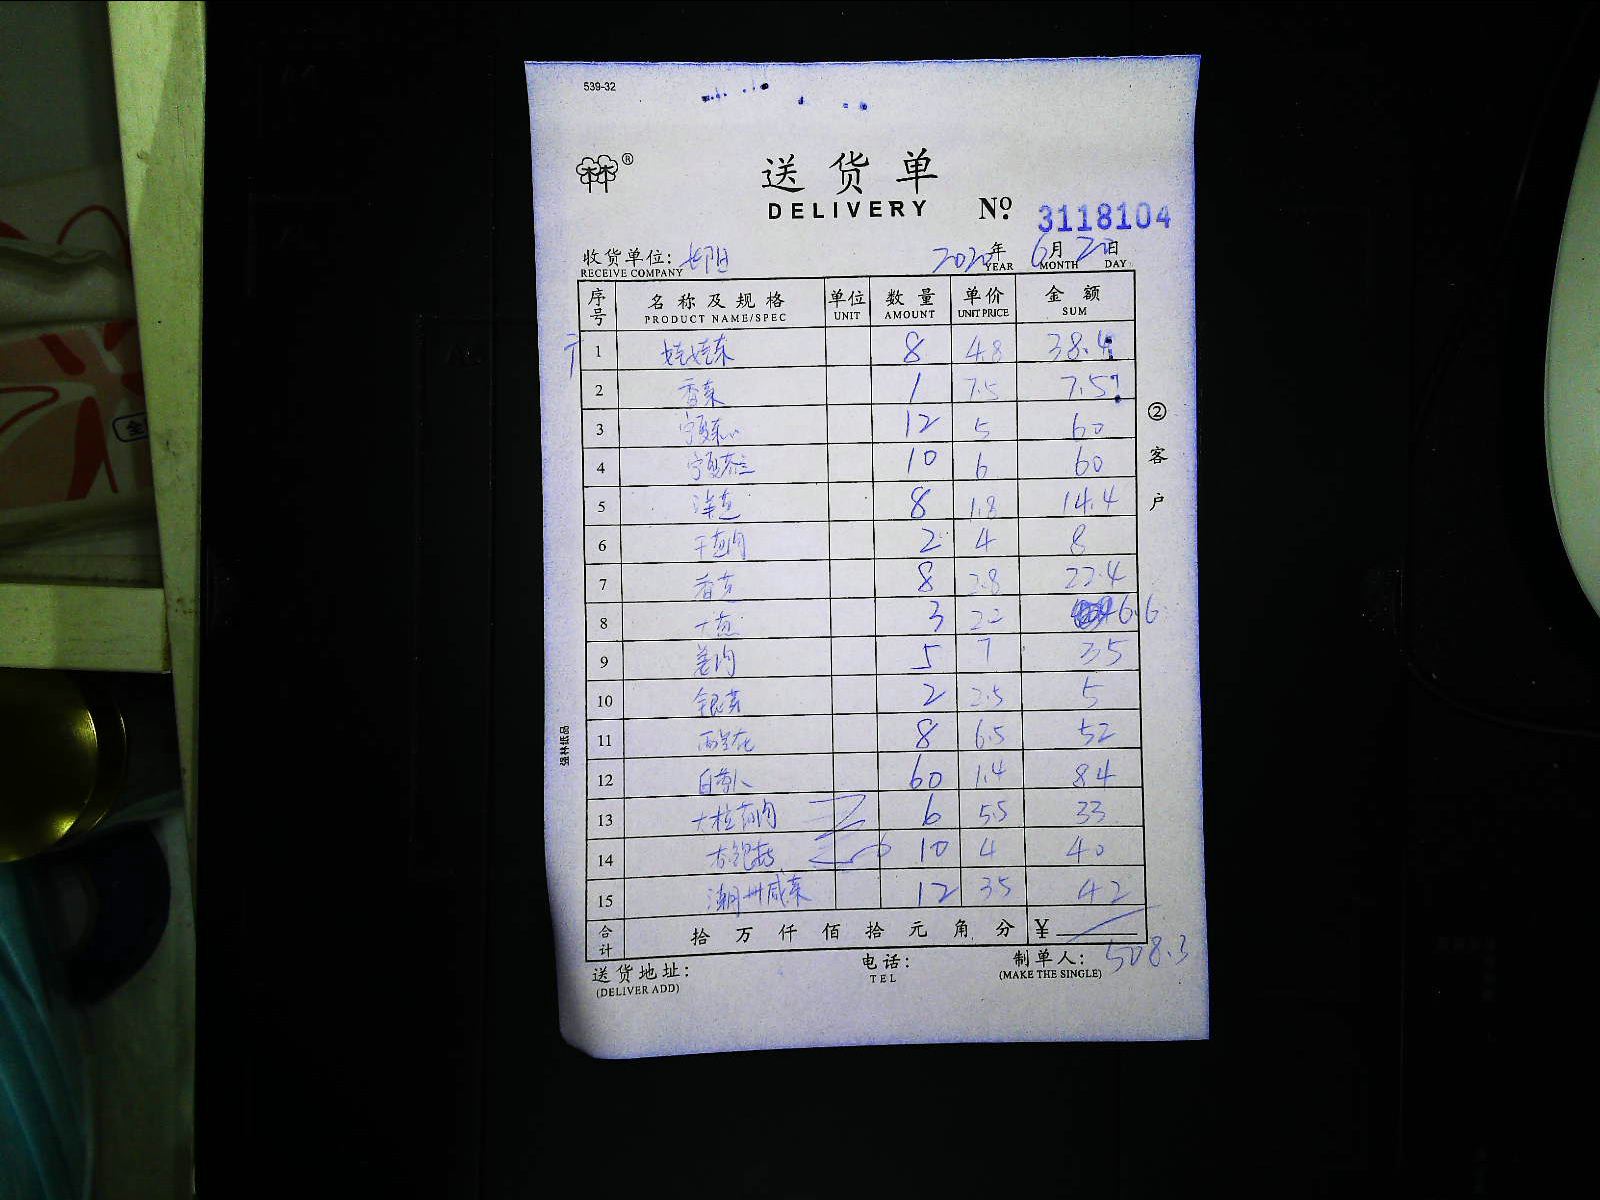 539-32
®
送货单
DELIVERY
No. 3118104
收货单位: 长阳 2020年6月20日
RECEIVE COMPANY YEAR MONTH DAY
序号 名称及规格 单位 数量 单价 金额
PRODUCT NAME/SPEC UNIT AMOUNT UNIT PRICE SUM
1 娃娃菜 8 4.8 38.4
2 香菜 1 7.5 7.5
3 宁夏菜心 12 5 60
4 宁夏 10 6 60
5 洋葱 8 1.8 14.4
6 干葱肉 2 4 8
7 香芹 8 2.8 22.4
8 3 2.2 6.6
9 姜肉 5 7 35
10 银芽 2 2.5 5
11 西兰花 8 6.5 52
12 白萝卜 60 1.4 84
13 大粒 肉 6 5.5 33
14 10 4 40
15 潮州咸菜 12 3.5 42
合计 拾 万 仟 佰 拾 元 角 分 ¥
508.3
送货地址: 电话: 制单人:
(DELIVER ADD) TEL (MAKE THE SINGLE)
② 客户
强林纸品